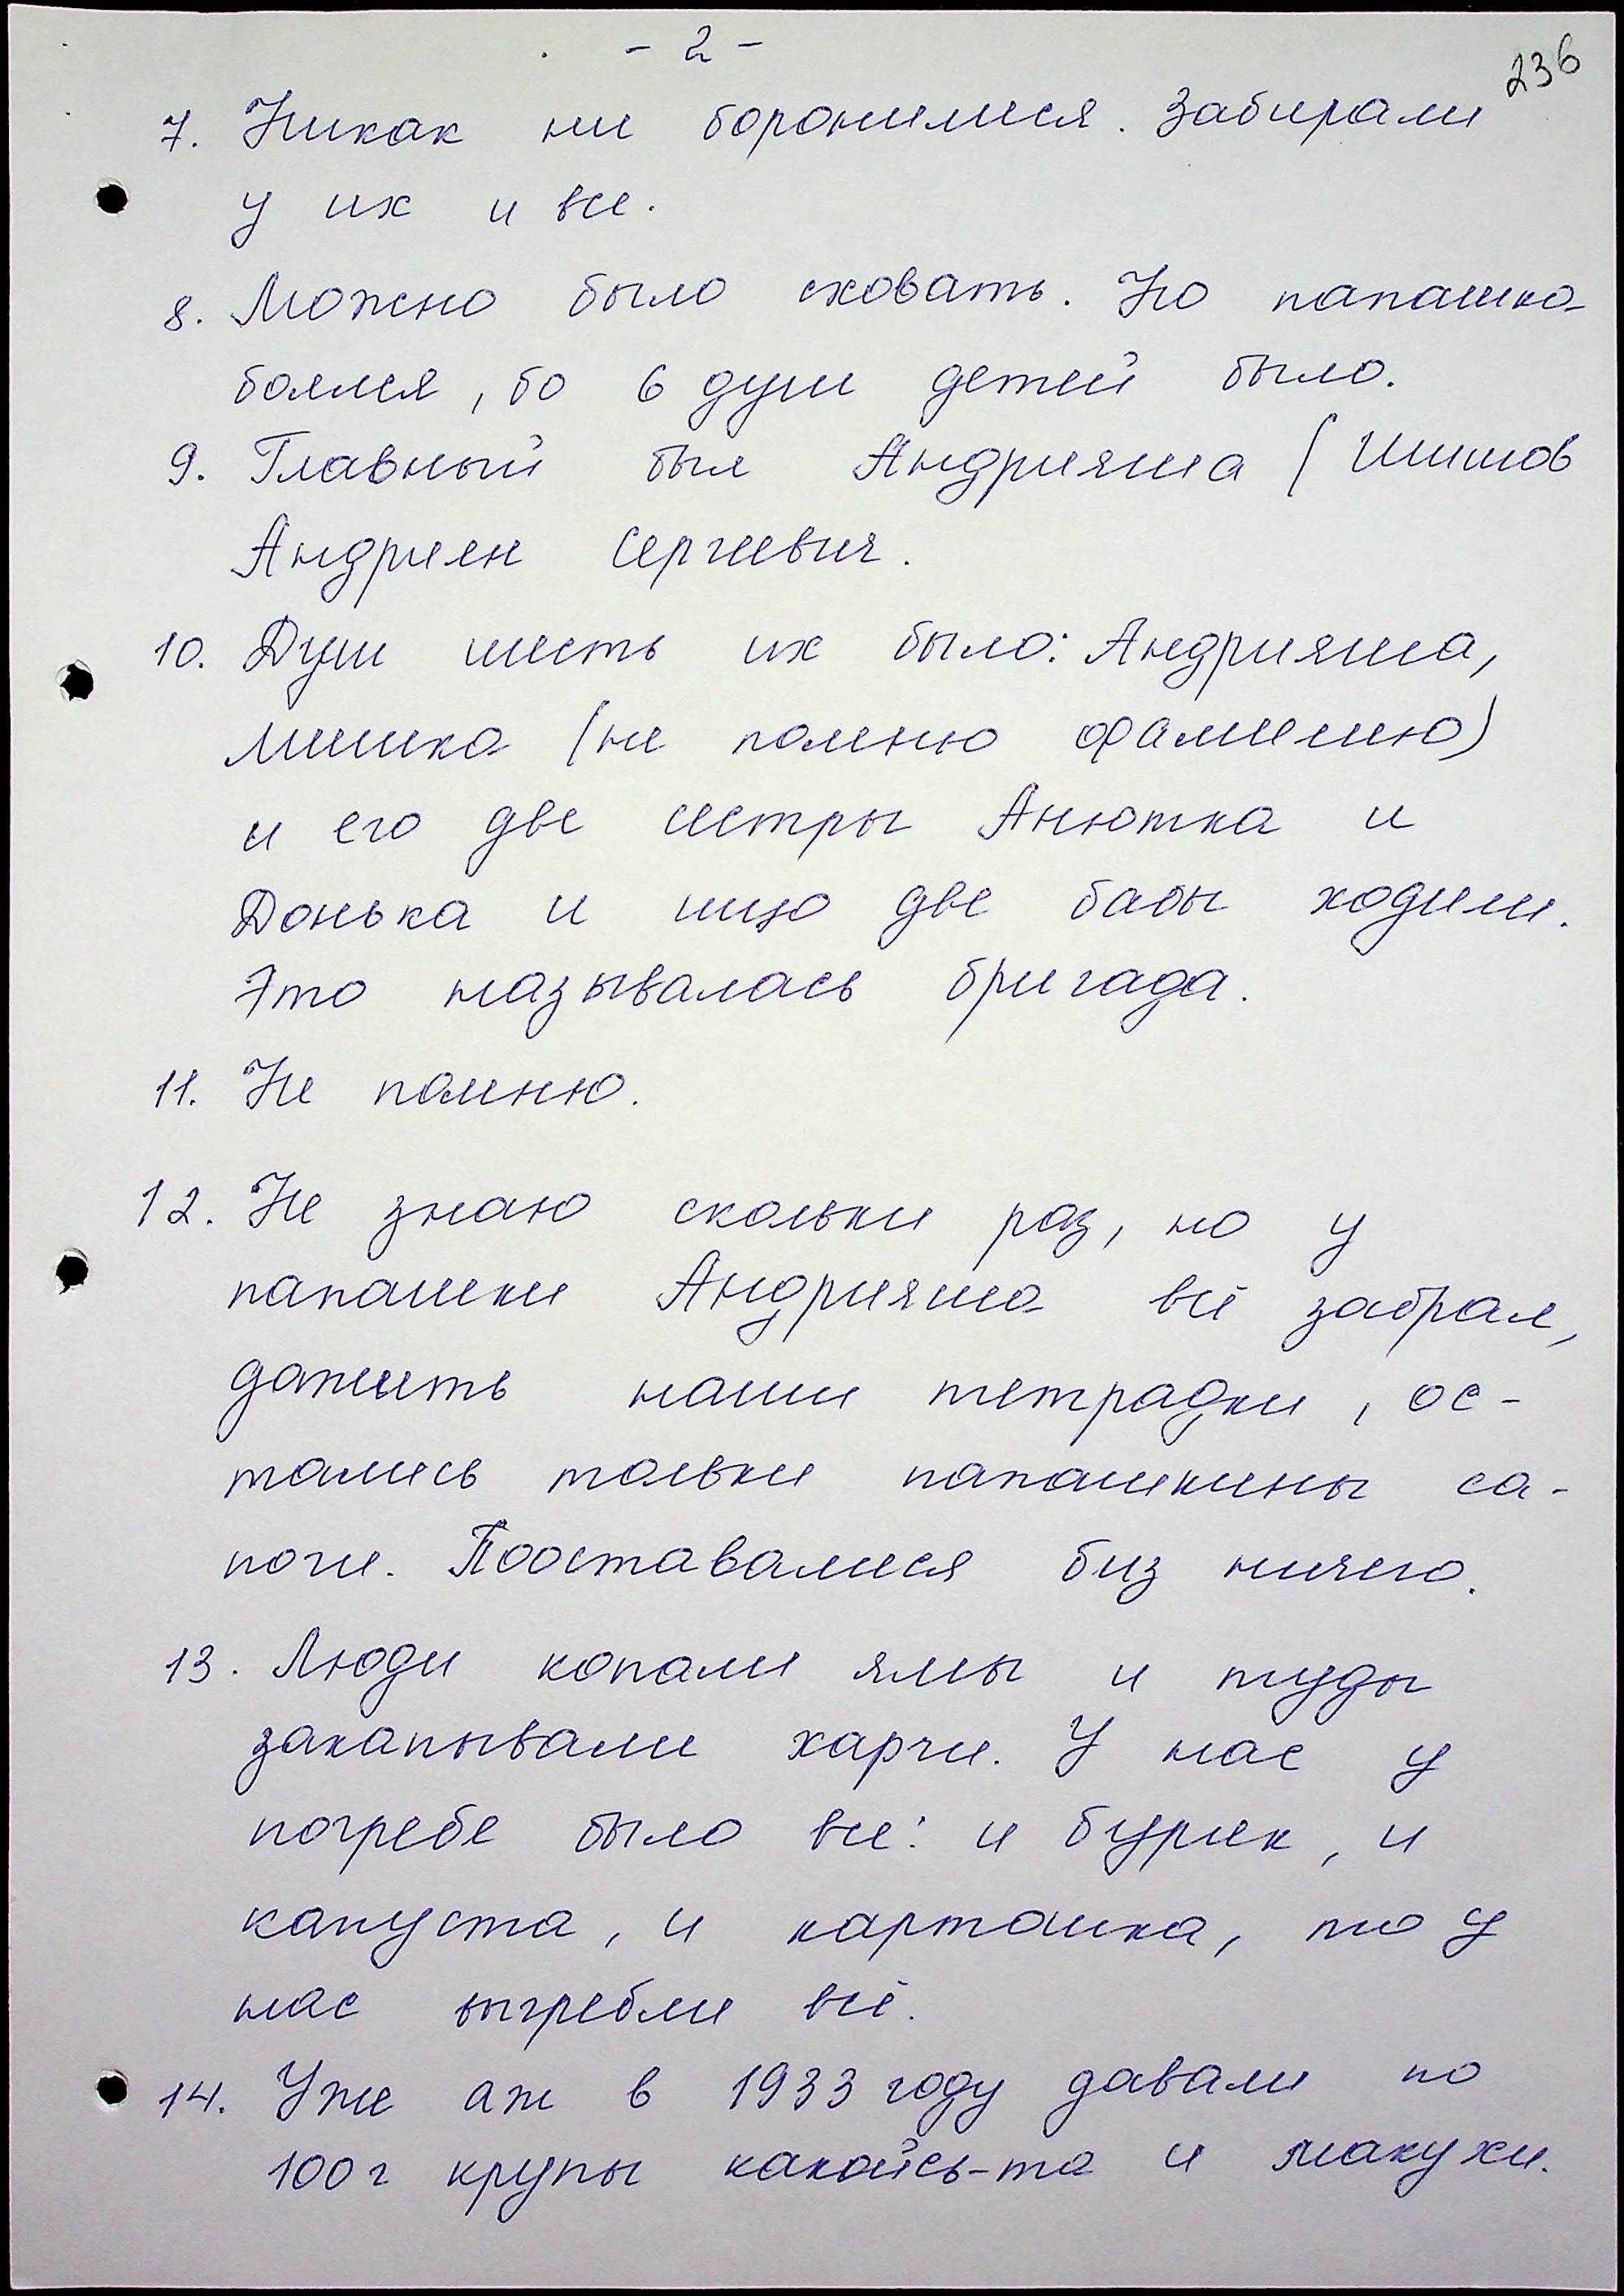 - 2 -
236
7. Никак ни боронилися. Забирали
у их и все.
8. Можно было сховать. Но папашка
боялся, бо 6 душ детей было.
9. Главный был Андрияша (Шишов
Андриян Сергеевич.
10. Душ шесть их было: Андрияша,
Мишка (не помню фамилию)
и его две сестры Анютка и
Донька и ищо две бабы ходили.
Это называлась бригада.
11. Не помню.
12. Не знаю скольки раз, но у
папашки Андрияша всё забрал,
дажить наши тетрадки, ос-
тались тольки папашкины са-
поги. Пооставалися биз ничего.
13. Люди копали ямы и туды
закапывали харчи. У нас у
погребе было все: и буряк, и
капуста, и картошка, то у
нас выгребли всё.
14. Уже аж в 1933 году давали по
100 г крупы какойсь-та и макухи.